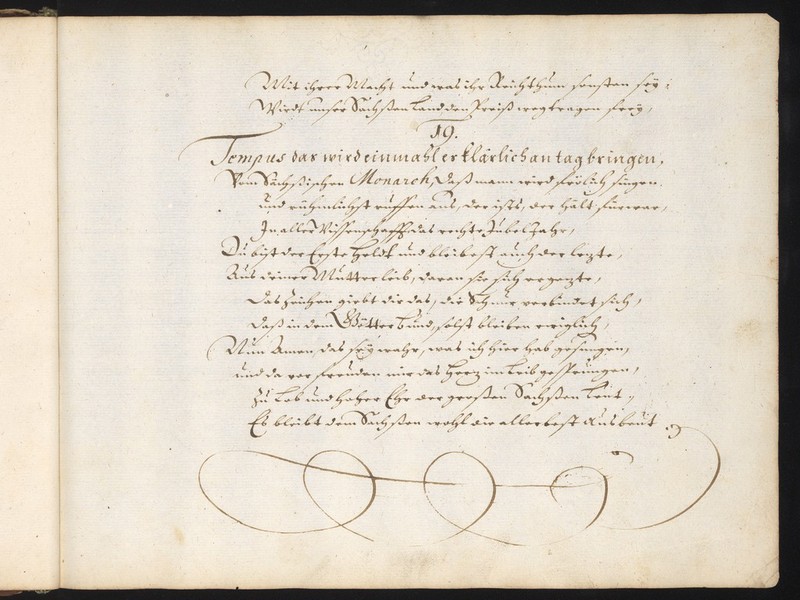 Mit ihrer Macht und was ihr Reichthum sonsten seÿ:
Wirdt unser Sachßen Land den Preiß wegtragen freÿ,
19.
Tempus das wird einmahl erklärlich an tag bringen,
Vom Sächsischen Monarch, daß mann wird frölich singen.
und rühmlichst ruffen aus, der ists, der hält fürwar,
In aller Wissenschafft das rechte Jubel Jahr,
Du bist der Erste Heldt und bleibest auch der letzte,
Aus deiner Mutter leib, daran sie sich ergetzte,
Das Zeichen giebt dir das, die Schnur verbindet sich,
Daß in dem Götter bund, solst bleiben ewiglich,
Nun Amen, das seÿ wahr, was ich hier hab gesungen,
und da vor freuden mir das Hertz im leib gesprungen,
Zu Lob und hoher Ehr der großen Sachßen Leut,
Es bleibt dem Sachßen wohl die allerbest Ausbeut